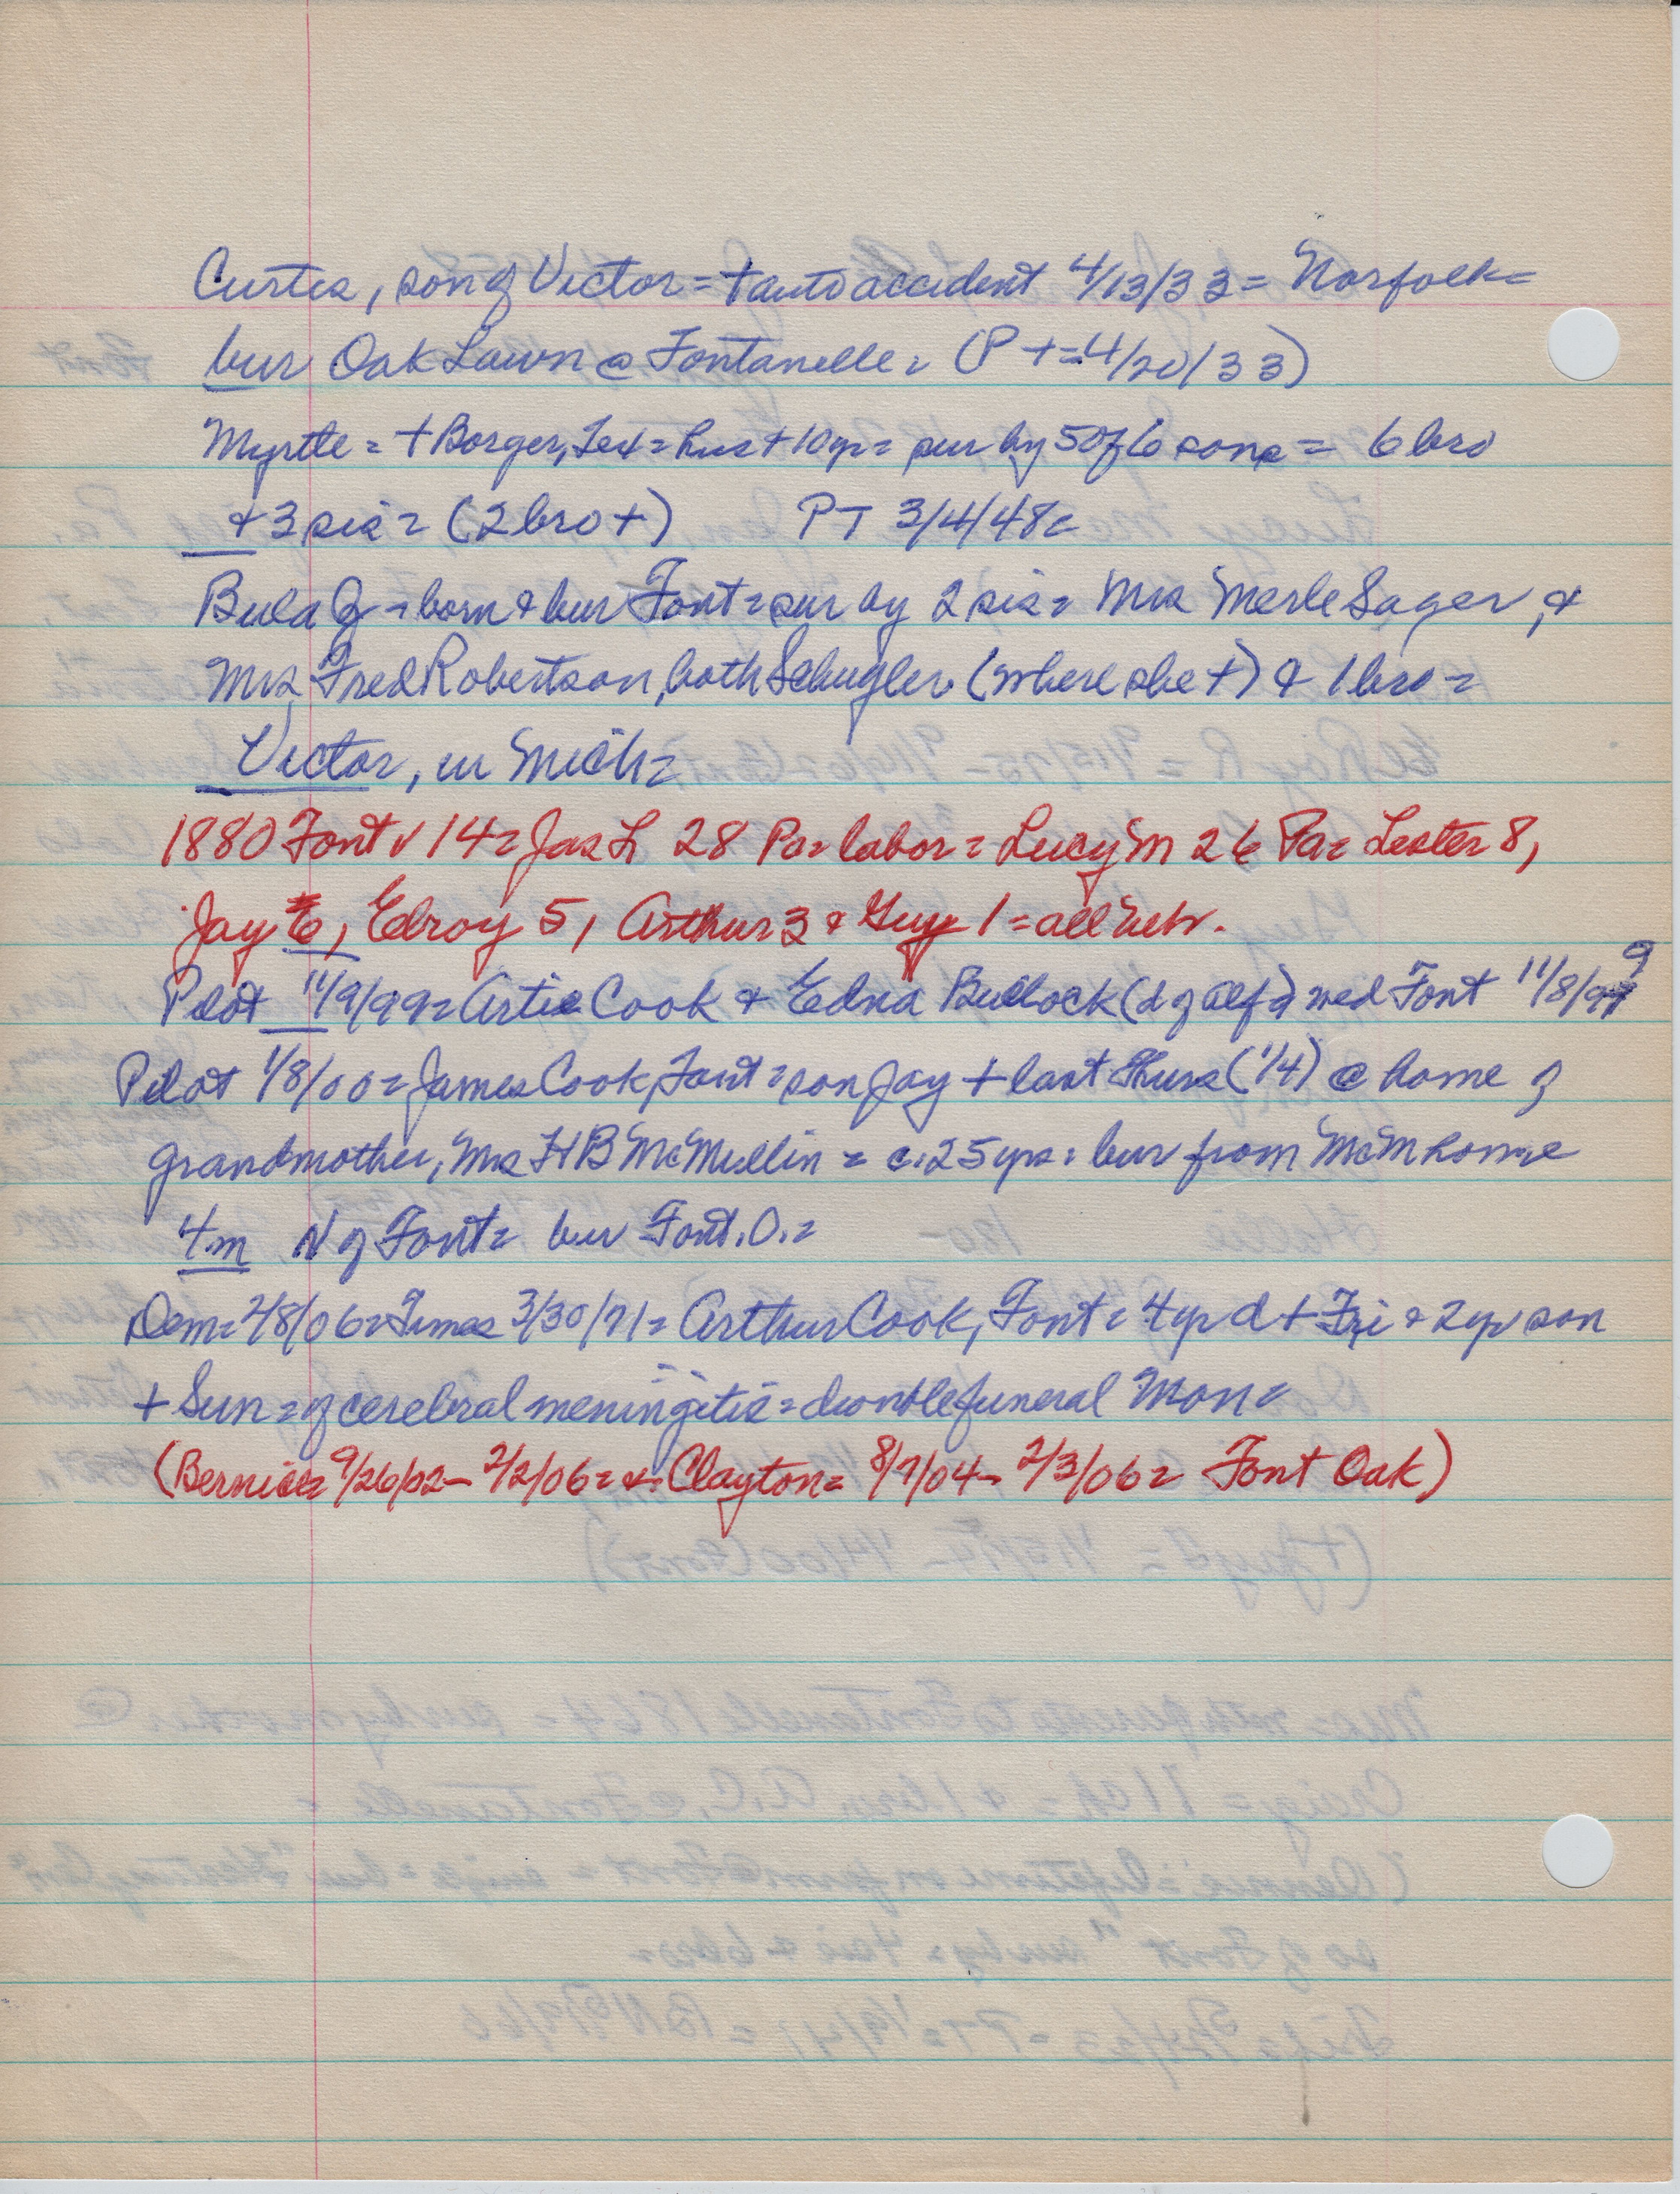 Curtis, son of Victor = + auto accident 4/13/33 = Norfolk =
bur Oak Lawn @ Fontanelle = (P + = 4/20/33)
Myrtle = + Borger, Tex = hus + 10 yr = sur by 5 of 6 sons = 6 bro
+ 3 sis = (2 bro +) PT 3/4/48 =
Bula J = born & bur Font = sur by 2 sis = Mrs Merle Sager, &
Mrs Fred Robertson, both Schuyler (where she +) & 1 bro =
Victor, in Mich =
1880 Font v 14 = Jas L 28 Pa = labor = Lucy M 26 Pa = Lester 8,
Jay 6, Edroy 5, Arthur 3 & Guy 1 = all Neb.
Pilot 11/9/99 = Artie Cook & Edna Bullock (d of Alf) wed Font 11/8/99
Pilot 1/8/00 = James Cook, Font = son Jay + last Thurs (1/4) @ home of
grandmother, Mrs HB McMullin = c. 25 yrs = bur from McM home
4 m N of Font = bur Font. O. =
Dem = 2/8/06 = Times 3/30/71 = Arthur Cook, Font = 4 yr d + Fri & 2 yr son
+ Sun = of cerebral meningitis = double funeral Mon =
(Bernice = 9/26/02 - 2/2/06 = & Clayton = 8/7/04 - 2/3/06 = Font Oak)